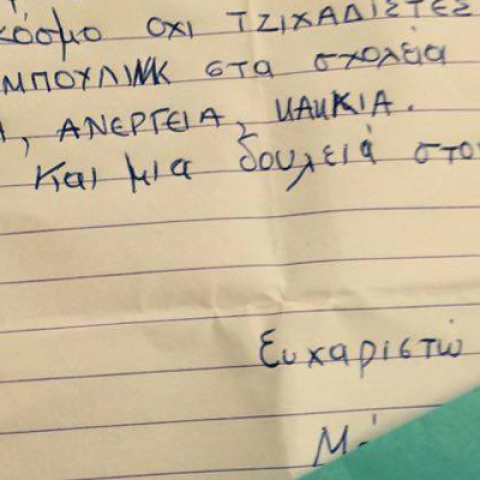 κόσμο οχι ΤΖΙΧΑΔΙΣΤΕΣ
ΜΠΟΥΛΙΝΚ στα σχολεία
, ΑΝΕΡΓΕΙΑ, ΚΑΚΚΙΑ.
Και μια δουλειά στο
Ευχαριστώ